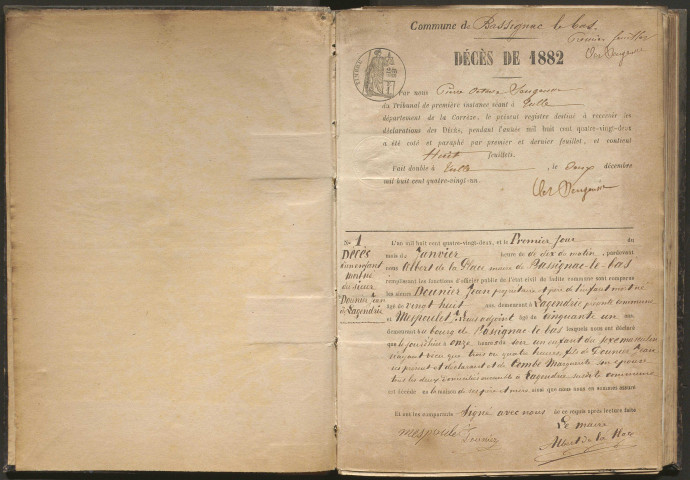 Commune de Bassignac le bas
Premier feuillet
DÉCÈS DE 1882
TIMBRE
Par nous Pierre
du Tribunal de première instance séant à Tulle
département de la Corrèze, le présent registre destiné à recevoir les
déclarations des Décès, pendant l'année mil huit cent quatre-vingt-deux
a été coté et paraphé par premier et dernier feuillet, et contient
Huit feuillets.
Fait double à Tulle, le Onze décembre
mil huit cent quatre-vingt-un.
N° 1
Décès
d'un enfant
du sieur
Dounier Jean
de Lagendrie
L'an mil huit cent quatre-vingt-deux, et le Premier jour du
mois de Janvier heure de dix du matin, pardevant
nous Albert de la Place maire de Bassignac-le-bas
remplissant les fonctions d'officier public de l'état civil de ladite commune sont comparus
les sieurs Dounier Jean propriétaire et père de l'enfant
âgé de vingt huit ans, demeurant à Lagendrie présente commune
et Mespoulet Louis adjoint âgé de Cinquante un ans,
demeurant au bourg de Bassignac le bas lesquels nous ont déclaré
que le jour d'hier onze heures du soir un enfant du sexe masculin
n'ayant vécu que trois ou quatre heures, fils de Dounier Jean
et de Combe Marguerite son épouse
tous les deux domiciliés ensemble à Lagendrie susdite commune
est décédé en la maison de ses père et mère ainsi que nous nous en sommes assuré
Et ont les comparants signé avec nous de ce requis après lecture faite
Le maire
mespoulet Dounier
Albert de la Place